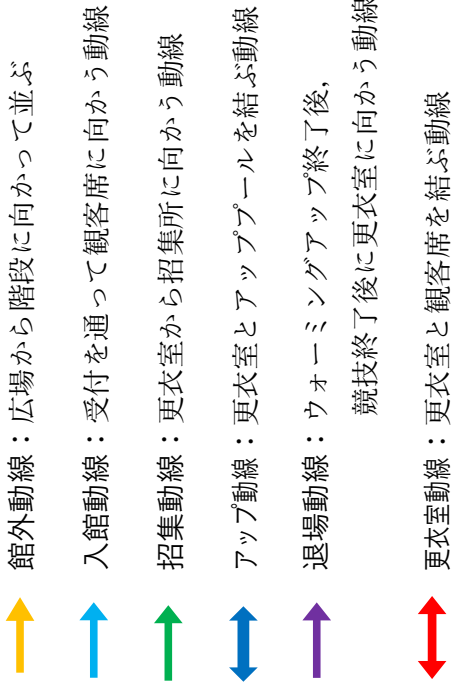 館外動線：広場から階段に向かって並ぶ
入館動線：受付を通って観客席に向かう動線
招集動線：更衣室から招集所に向かう動線
アップ動線：更衣室とアッププールを結ぶ動線
退場動線：ウォーミングアップ終了後，
競技終了後に更衣室に向かう動線
更衣室動線：更衣室と観客席を結ぶ動線